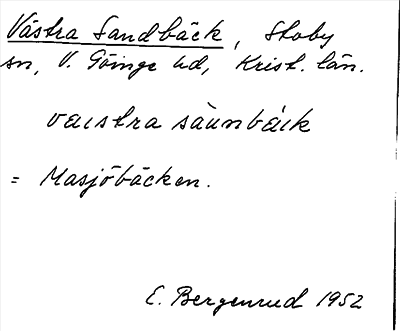 Västra Sandbäck, Stoby
sn, V. Göinge hd, Krist. län.
vaistra sàunbáik
= Masjöbäcken.
E. Bergenrud 1952